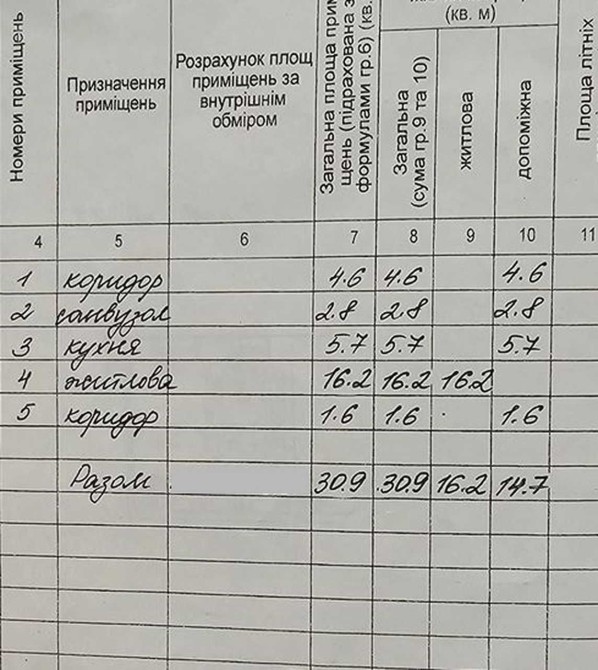 (кв. м)
Номери приміщень
Призначення приміщень
Розрахунок площ приміщень за внутрішнім обміром
Загальна площа прим
щень (підрахована з
формулами гр.6) (кв.
Загальна
(сума гр.9 та 10)
житлова
допоміжна
Площа літніх
4 5 6 7 8 9 10 11
1 коридор 4.6 4.6 4.6
2 санвузол 2.8 2.8 2.8
3 кухня 5.7 5.7 5.7
4 житлова 16.2 16.2 16.2
5 коридор 1.6 1.6 1.6
Разом 30.9 30.9 16.2 14.7